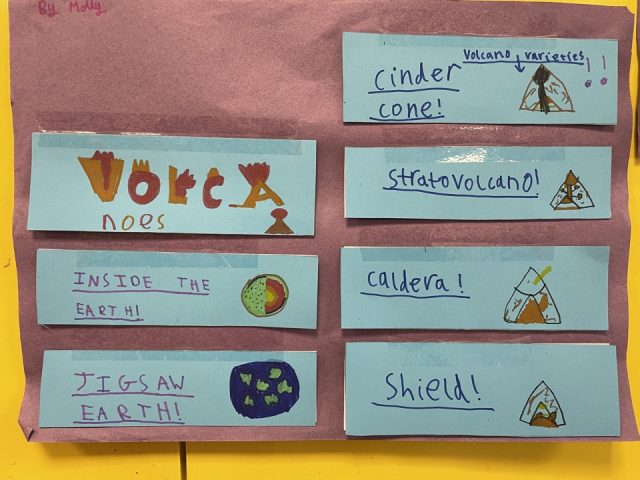 By Molly
VOLCA
noes
INSIDE THE
EARTH!
JIGSAW
EARTH!
Volcano varieties!!
cinder
cone!
stratovolcano!
caldera!
Shield!